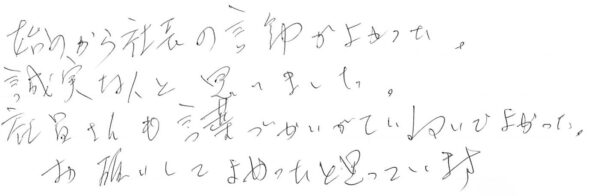 始めから社長の言動がよかった。
誠実な人と思いました。
社員さんも言葉づかいがていねいでよかった。
お願いしてよかったと思っています